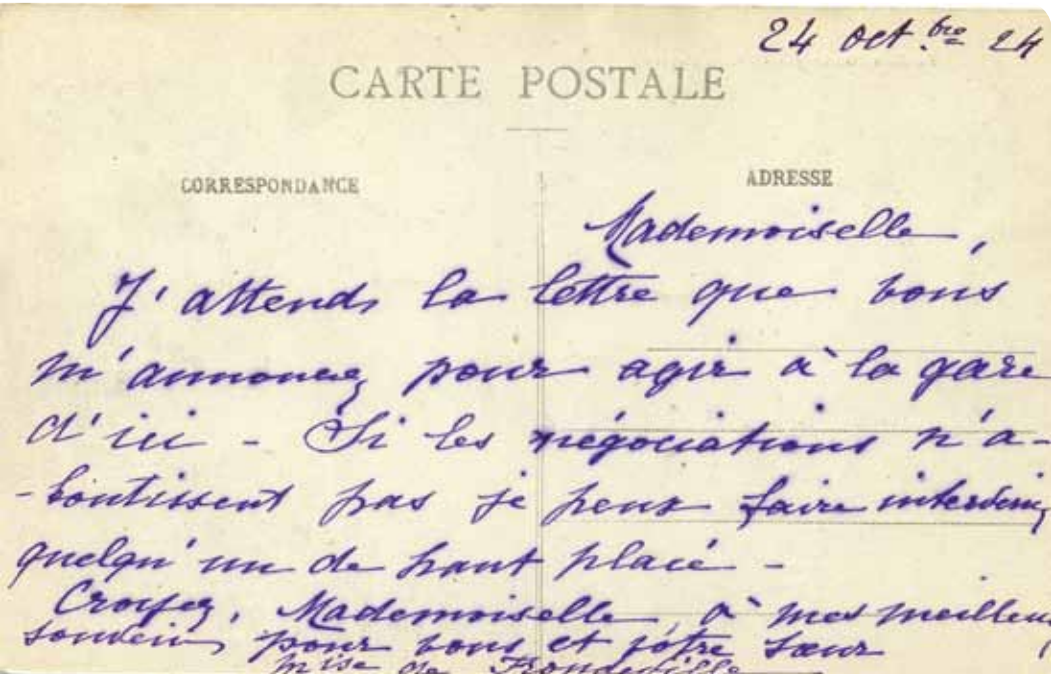 24 oct.bre 24
CARTE POSTALE
CORRESPONDANCE
ADRESSE
Mademoiselle,
J'attends la lettre que vous
m'annoncez pour agir à la gare
d'ici - Si les négociations n'a-
-boutissent pas je peux faire intervenir
quelqu'un de haut placé -
Croyez, Mademoiselle, à mes meilleurs
souvenirs pour vous et votre sœur
Mise de Frondeville